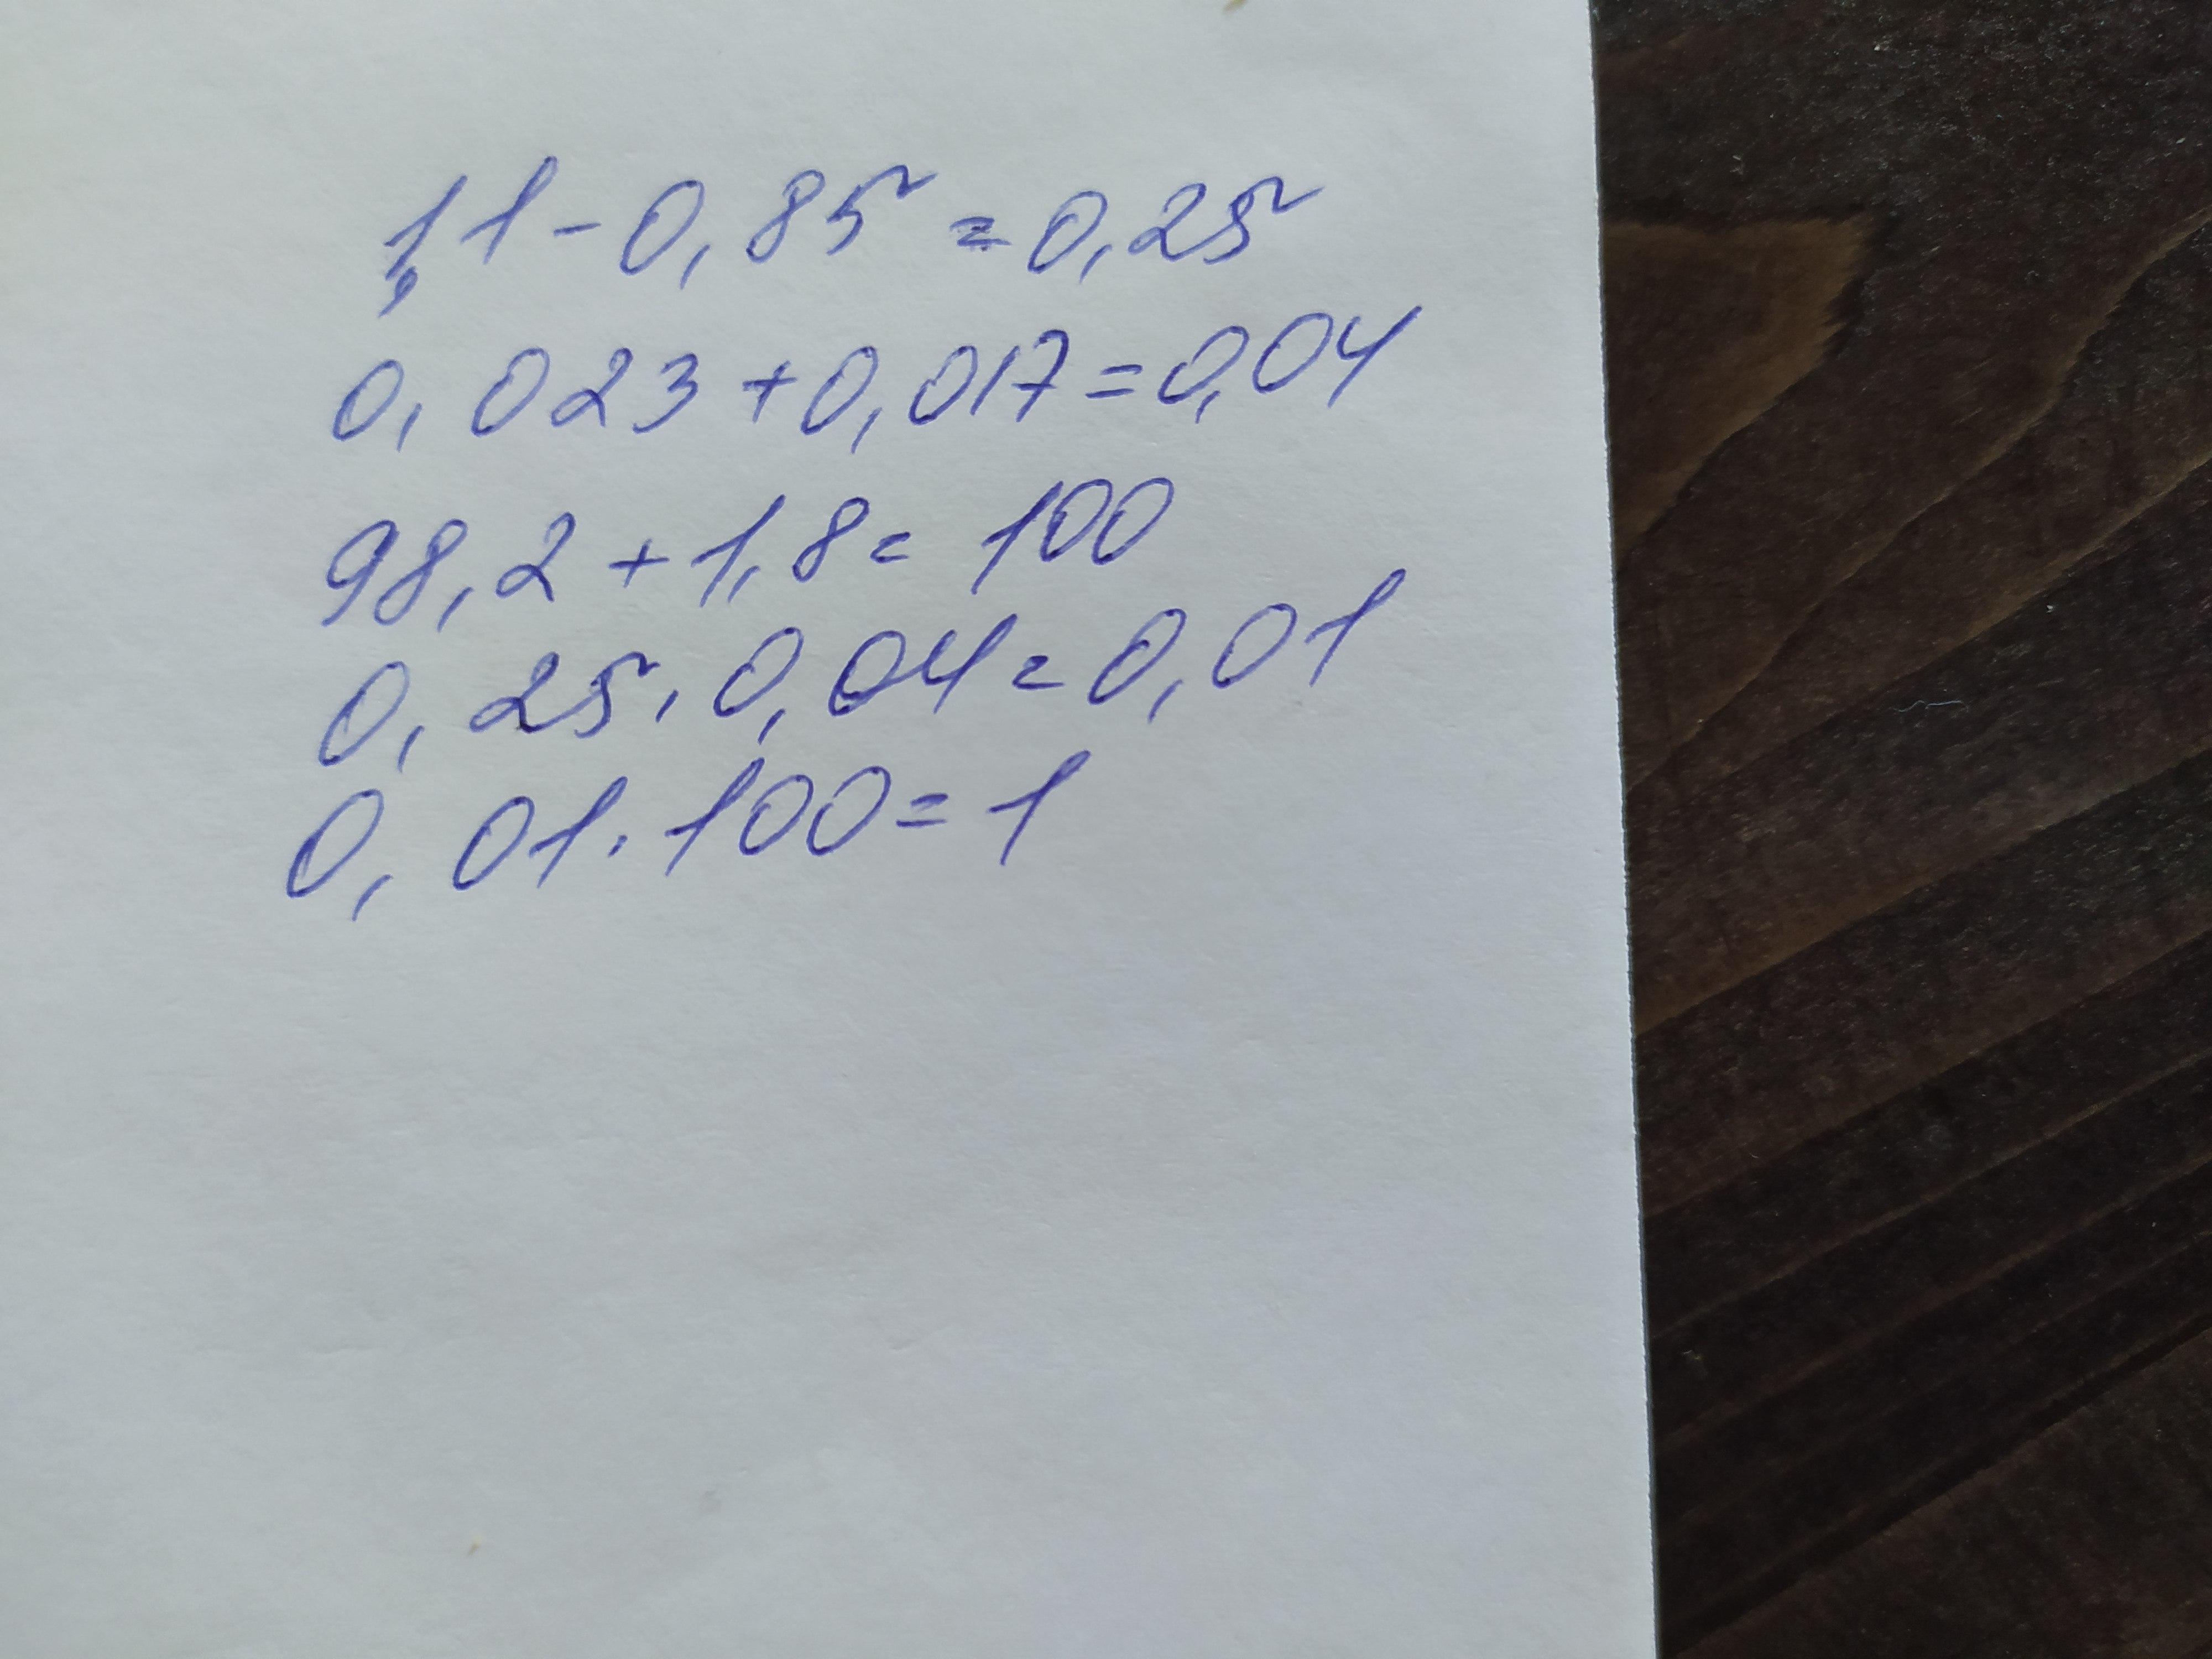 1,1 - 0,85 = 0,25
0,023 + 0,017 = 0,04
98,2 + 1,8 = 100
0,25 · 0,04 = 0,01
0,01 · 100 = 1